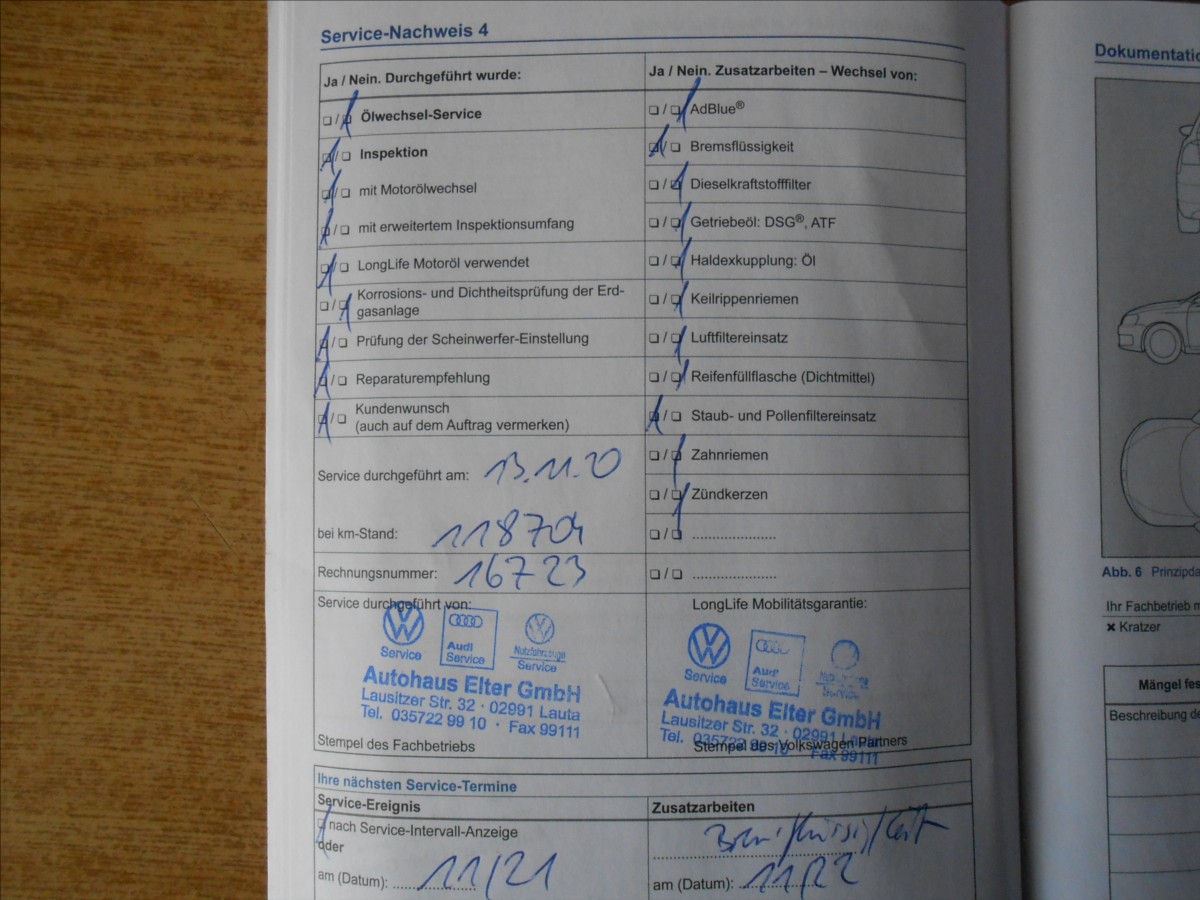 Service-Nachweis 4
Ja / Nein. Durchgeführt wurde:
❏ / ❏ Ölwechsel-Service
❏ / ❏ Inspektion
❏ / ❏ mit Motorölwechsel
❏ / ❏ mit erweitertem Inspektionsumfang
❏ / ❏ LongLife Motoröl verwendet
❏ / ❏ Korrosions- und Dichtheitsprüfung der Erd-
gasanlage
❏ / ❏ Prüfung der Scheinwerfer-Einstellung
❏ / ❏ Reparaturempfehlung
❏ / ❏ Kundenwunsch
(auch auf dem Auftrag vermerken)
Service durchgeführt am: 13.11.20
bei km-Stand: 118704
Rechnungsnummer: 16723
Service durchgeführt von:
Service
Audi
Service
Nutzfahrzeuge
Service
Autohaus Elter GmbH
Lausitzer Str. 32 · 02991 Lauta
Tel. 035722 99 10 · Fax 99111
Stempel des Fachbetriebs
Ja / Nein. Zusatzarbeiten – Wechsel von:
❏ / ❏ AdBlue®
❏ / ❏ Bremsflüssigkeit
❏ / ❏ Dieselkraftstofffilter
❏ / ❏ Getriebeöl: DSG®, ATF
❏ / ❏ Haldexkupplung: Öl
❏ / ❏ Keilrippenriemen
❏ / ❏ Luftfiltereinsatz
❏ / ❏ Reifenfüllflasche (Dichtmittel)
❏ / ❏ Staub- und Pollenfiltereinsatz
❏ / ❏ Zahnriemen
❏ / ❏ Zündkerzen
❏ / ❏ .....................
❏ / ❏ .....................
LongLife Mobilitätsgarantie:
Service
Audi
Service
Service
Autohaus Elter GmbH
Lausitzer Str. 32 · 02991 Lauta
Tel. 035722 99 10 · Fax 99111
Stempel des Volkswagen Partners
Ihre nächsten Service-Termine
Service-Ereignis
❏ nach Service-Intervall-Anzeige
oder
am (Datum): 11/21
Zusatzarbeiten
Bremsflüssigkeit
am (Datum): 11/22
Dokumentatio
Abb. 6 Prinzipda
Ihr Fachbetrieb m
✖ Kratzer
Mängel fes
Beschreibung de